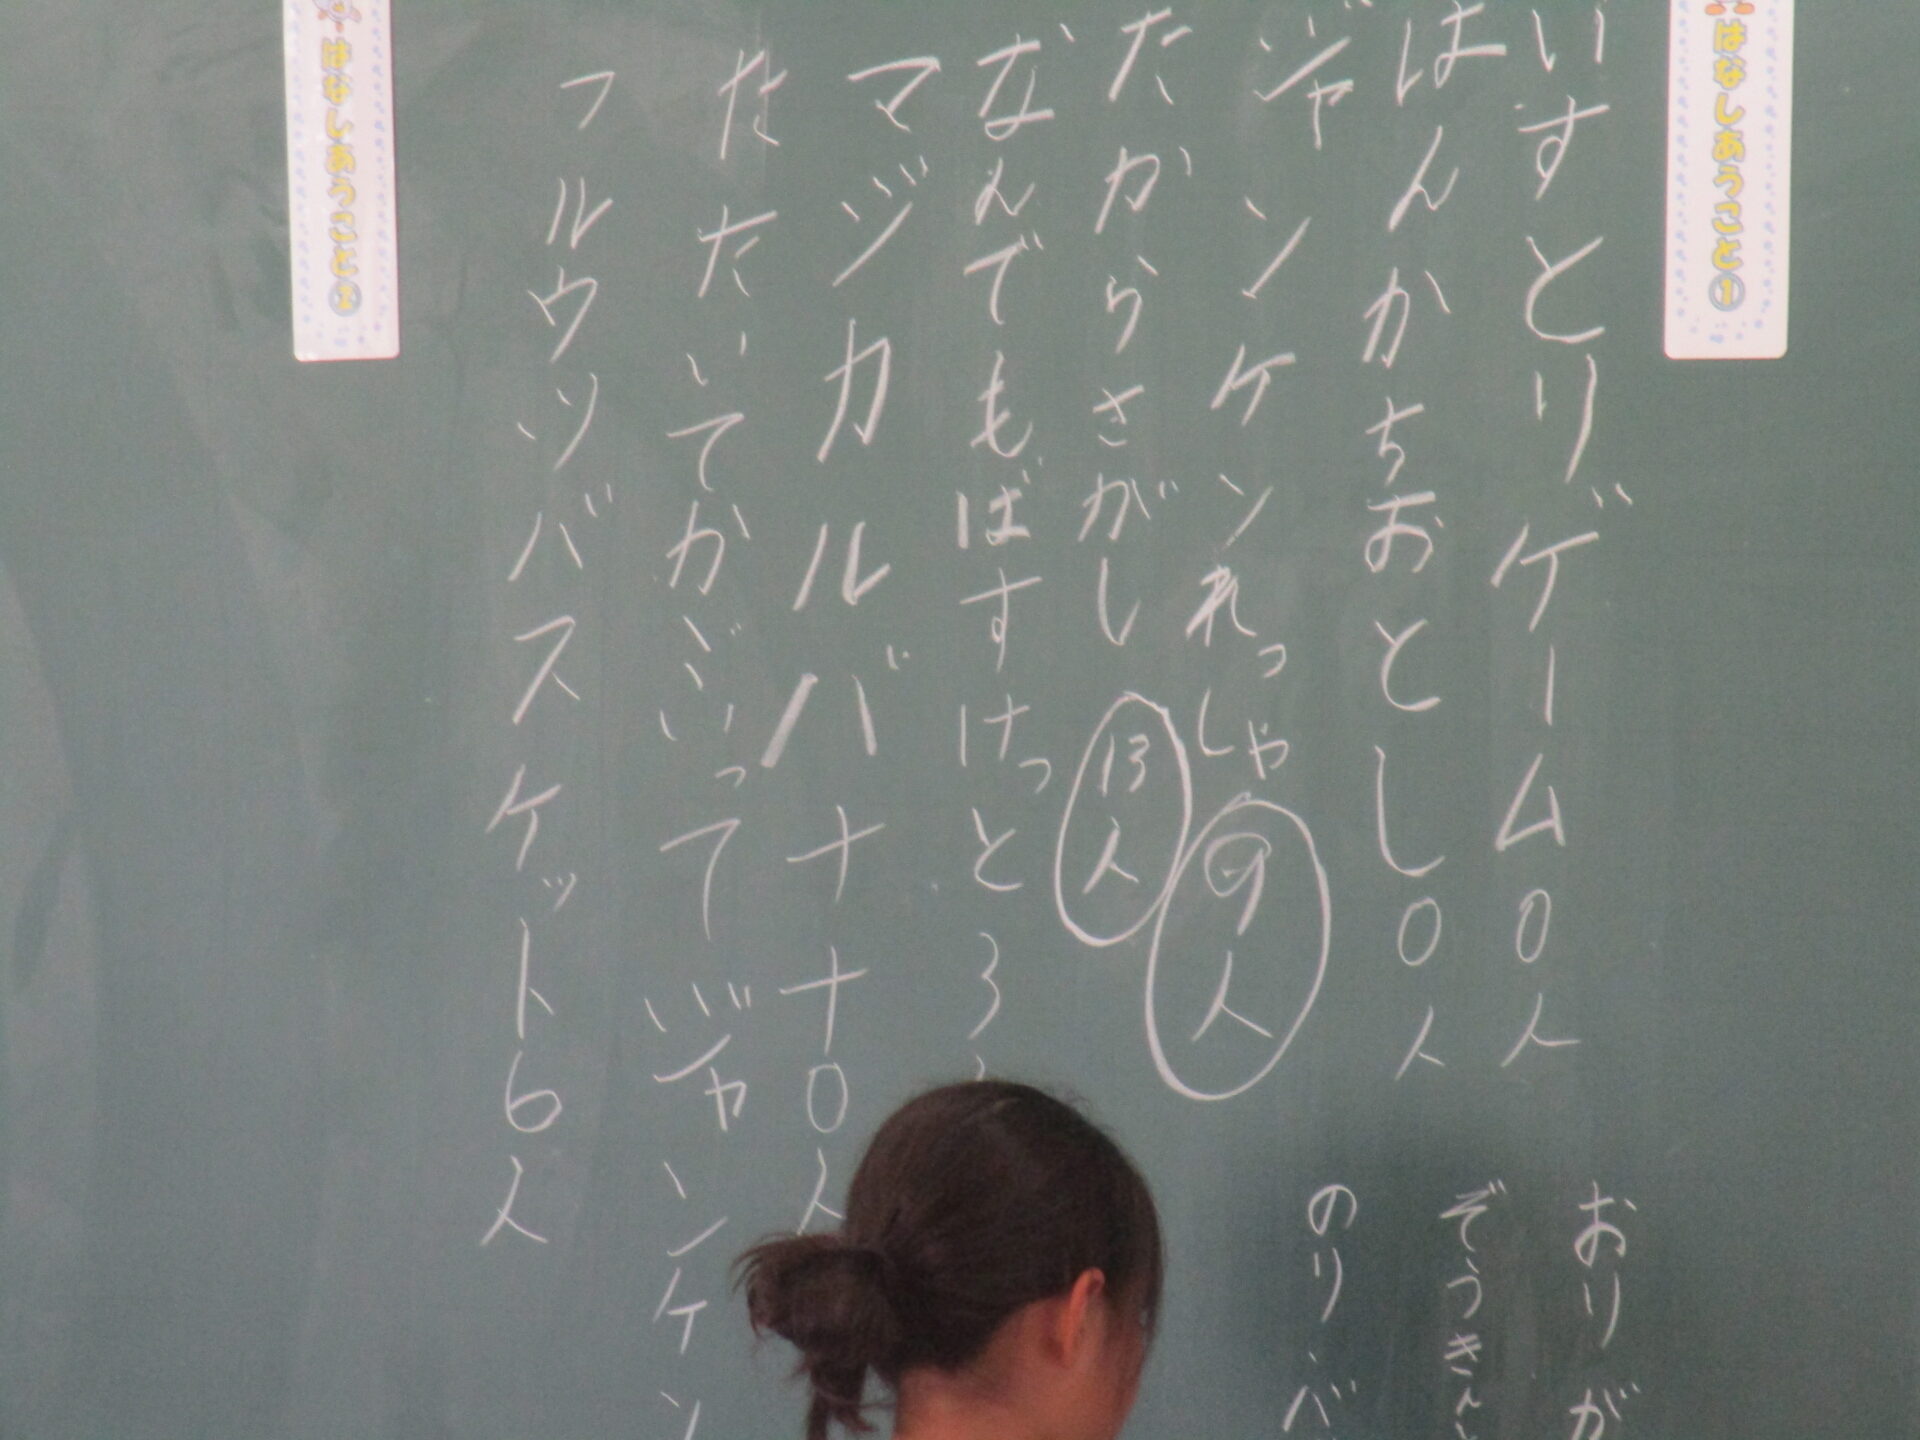 はなしあうこと①
いすとりゲーム0人
はんかちおとし0人
ジャンケンれっしゃ⑨人
たからさがし 13人
なんでもばすけっと3
マジカルバナナ0人
たたいてかぶってジャンケン
フルウツバスケット6人
はなしあうこと②
おりが
ぞうきん
のり